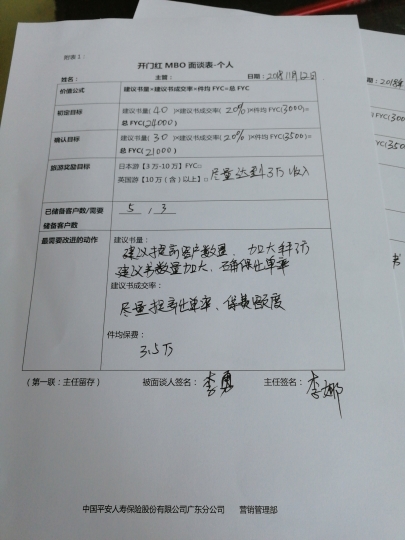 附表1：
开门红 MBO 面谈表-个人
姓名： 主管： 日期：2018.11月12日
价值公式 建议书量×建议书成交率×件均 FYC=总 FYC
初定目标 建议书量( 40 )×建议书成交率( 20% )×件均 FYC(3000)=
总 FYC(24000)
确认目标 建议书量( 30 )×建议书成交率( 20% )×件均 FYC(3500)=
总 FYC(21000)
旅游奖励目标 日本游【3万-10万】FYC□
英国游【10万（含）以上】□ 尽量达到3万收入
已储备客户数/需要 5 , 3
储备客户数
最需要改进的动作 建议书量：
建议提高客户数量、加大拜访
建议书数量加大、确保出单率
建议书成交率：
尽量提高出单率、保费额度
件均保费：
3.5万
（第一联：主任留存） 被面谈人签名：李勇 主任签名：李娜
中国平安人寿保险股份有限公司广东分公司 营销管理部